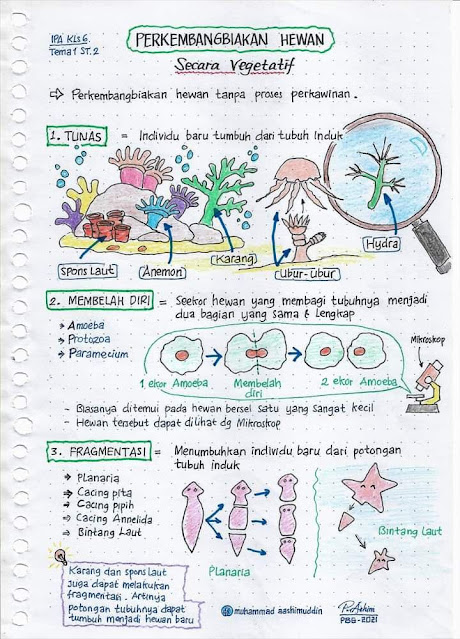 IPA KLS 6
Tema 1 ST. 2
PERKEMBANGBIAKAN HEWAN
Secara Vegetatif
⇨ Perkembangbiakan hewan tanpa proses perkawinan.
1. TUNAS = Individu baru tumbuh dari tubuh induk
Spons Laut
Anemon
Karang
Ubur-Ubur
Hydra
2. MEMBELAH DIRI = Seekor hewan yang membagi tubuhnya menjadi
dua bagian yang sama & lengkap
→ Amoeba
→ Protozoa
→ Paramecium
Mikroskop
1 ekor Amoeba
Membelah
diri
2 ekor Amoeba
- Biasanya ditemui pada hewan bersel satu yang sangat kecil
- Hewan tersebut dapat dilihat dg Mikroskop
3. FRAGMENTASI = Menumbuhkan individu baru dari potongan
tubuh induk
→ Planaria
→ Cacing pita
→ Cacing pipih
→ Cacing Annelida
→ Bintang Laut
Planaria
Bintang Laut
Karang dan spons laut
juga dapat melakukan
fragmentasi. Artinya
potongan tubuhnya dapat
tumbuh menjadi hewan baru
muhammad aashimuddin
PBG-2021